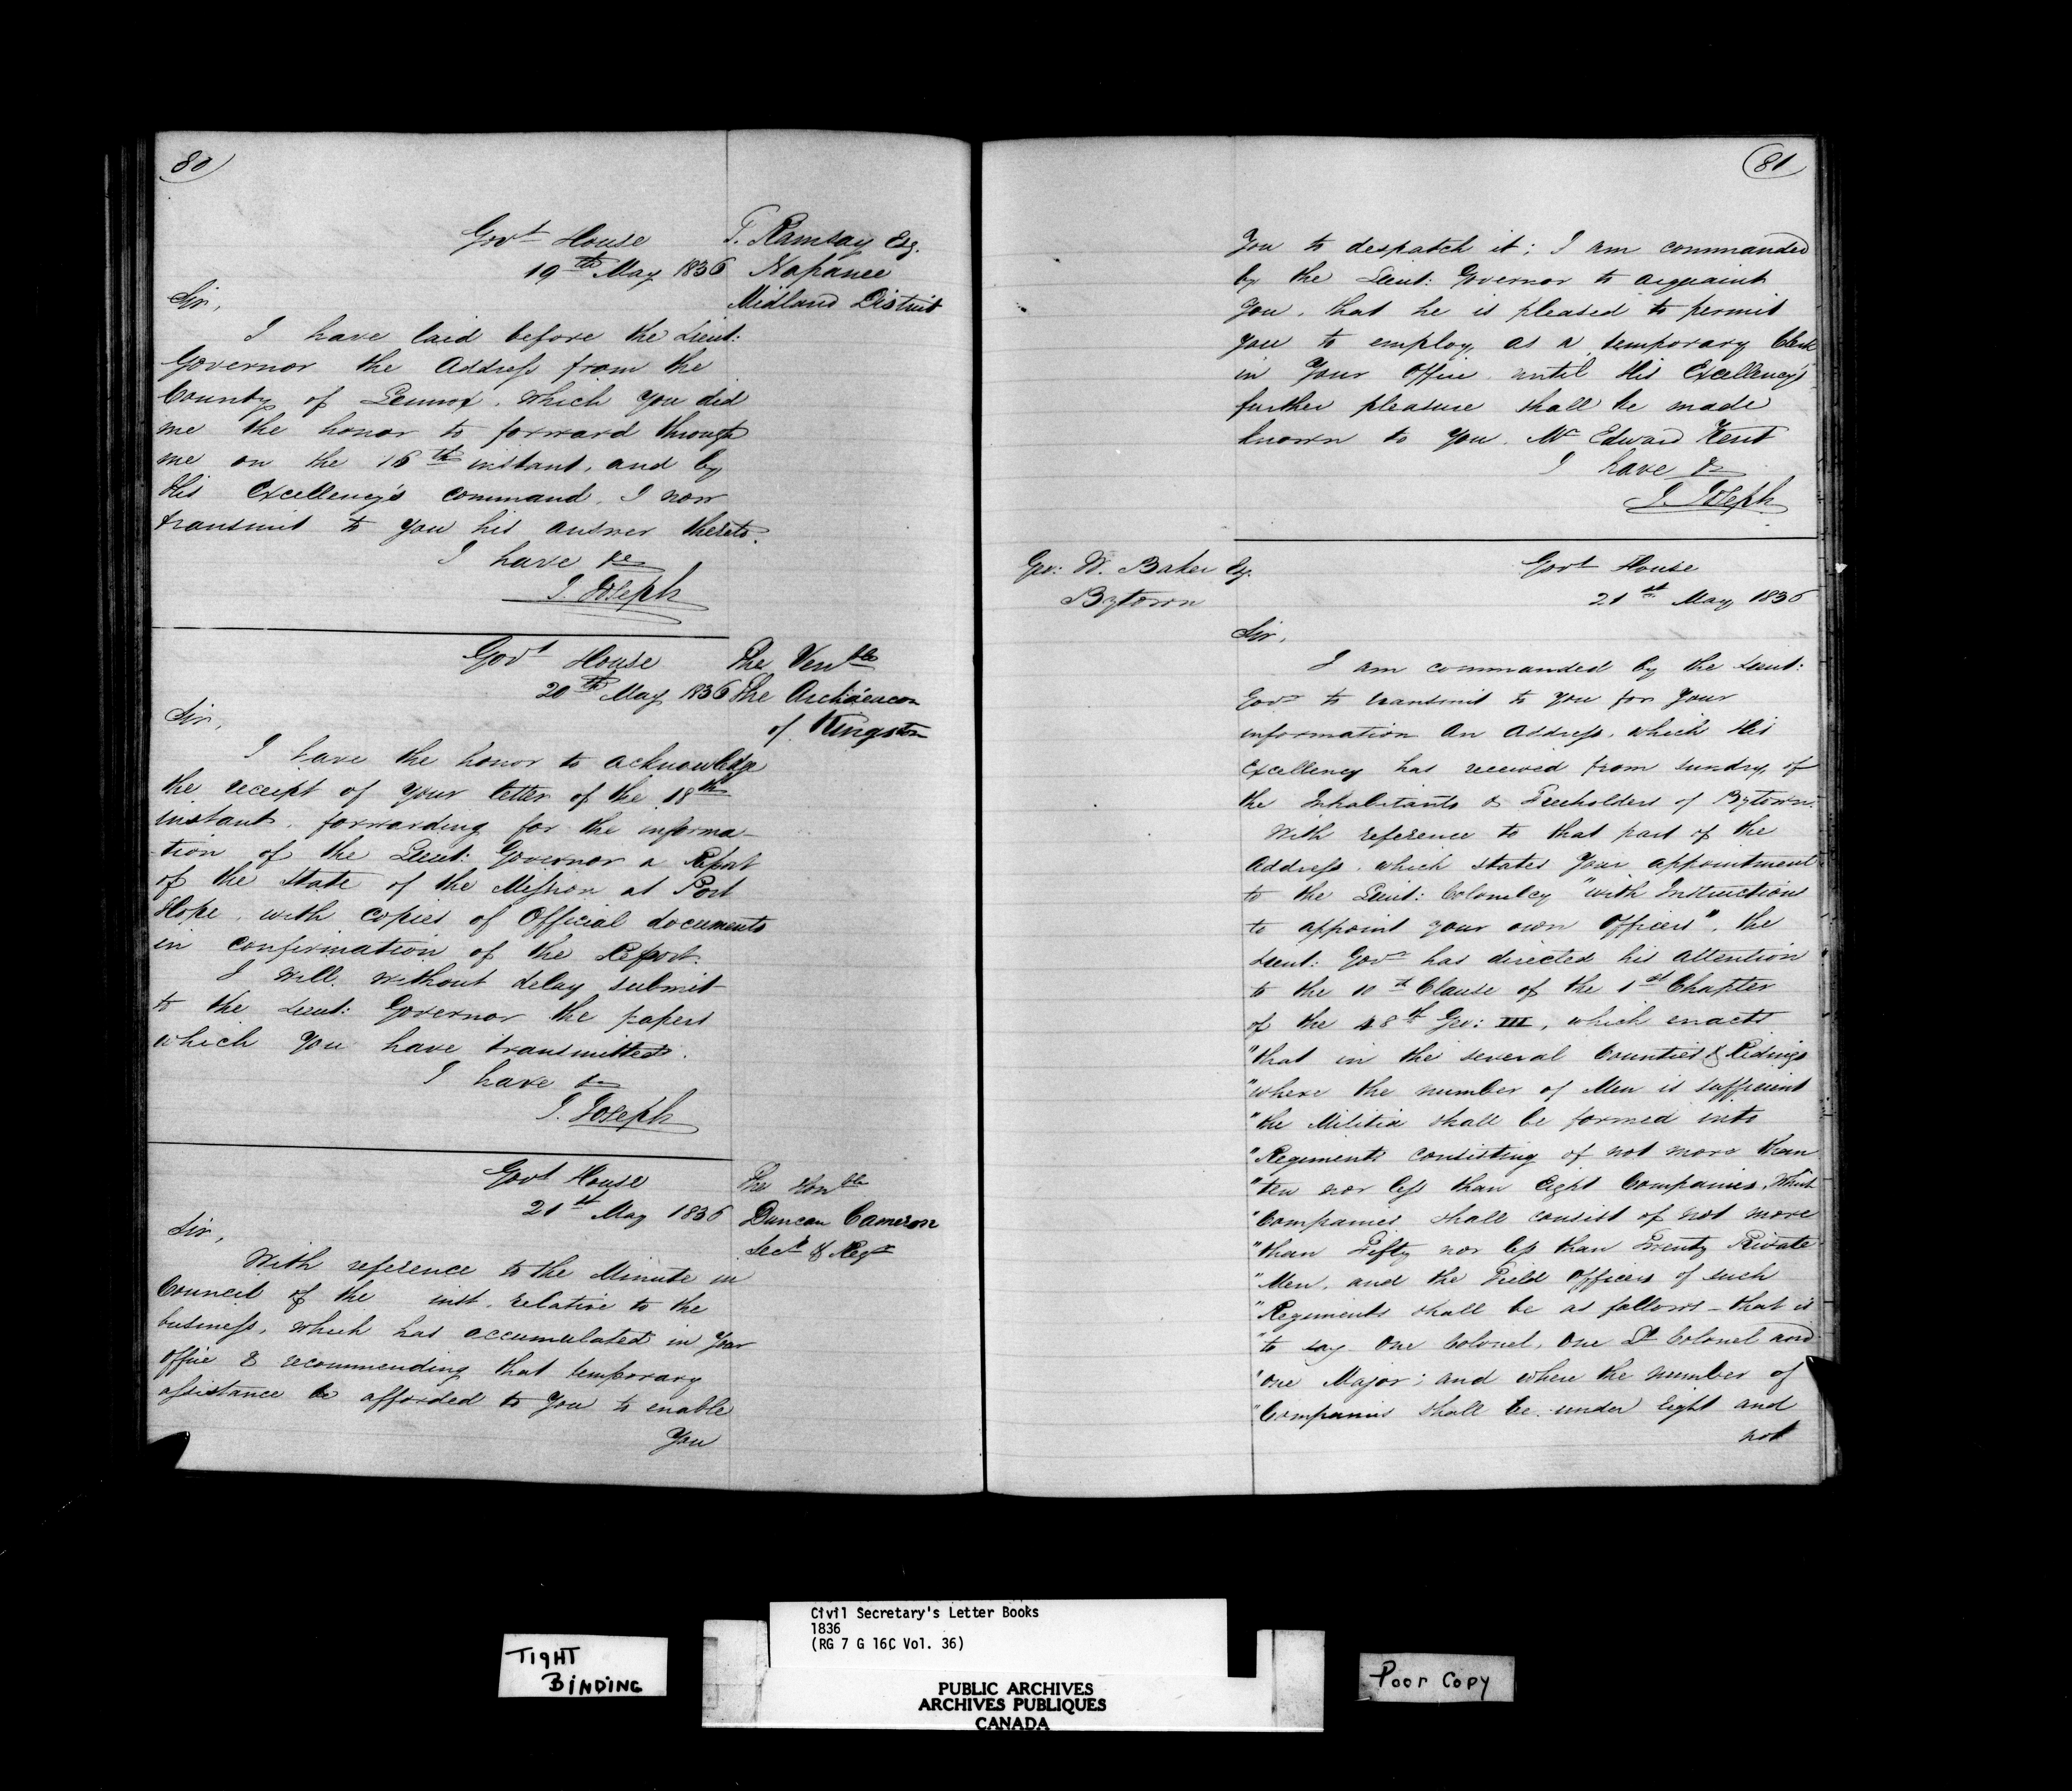 80
Govt House
19th May 1836
T. Ramsay Esq.
Napanee
Midland District
Sir,
I have laid before the Lieut:
Governor the Address from the
County of Lennox, which you did
me the honor to forward through
me on the 16th instant, and by
His Excellency's command, I now
transmit to you his answer thereto.
I have &c
J. Joseph
Govt House
20th May 1836
The Venble
The Archdeacon
of Kingston
Sir,
I have the honor to acknowledge
the receipt of your letter of the 18th
instant, forwarding for the informa-
-tion of the Lieut: Governor a Report
of the State of the Mission at Port
Hope, with copies of Official documents
in confirmation of the Report.
I will, without delay submit
to the Lieut: Governor the papers
which you have transmitted.
I have &c
J. Joseph
Govt House
21st May 1836
The Honble
Duncan Cameron
Secy & Regr
Sir,
With reference to the Minute in
Council of the inst. relative to the
business, which has accumulated in your
office & recommending that temporary
assistance be afforded to you to enable
you
81
You to despatch it; I am commanded
by the Lieut: Governor to acquaint
you, that he is pleased to permit
you to employ, as a temporary Clerk
in your Office, until His Excellency's
further pleasure shall be made
known to you, Mr Edward Kent
I have &c
J. Joseph
Geo: W. Baker Esq.
Bytown
Govt House
21st May 1836
Sir,
I am commanded by the Lieut:
Govr to transmit to you for your
information an Address, which His
Excellency has received from sundry of
the Inhabitants & Freeholders of Bytown.
With reference to that part of the
Address, which states your appointment
to the Lieut: Colonelcy "with Instructions
to appoint your own Officers", the
Lieut: Govr has directed his attention
to the 10th Clause of the 1st Chapter
of the 48th Geo: III, which enacts
"that in the several Counties & Ridings
"where the number of Men is sufficient
"the Militia shall be formed into
"Regiments consisting of not more than
"ten nor less than Eight Companies, which
"Companies shall consist of not more
"than Fifty nor less than Twenty Private
"Men, and the Field Officers of such
"Regiments shall be as follows – that is
"to say One Colonel, One Lt Colonel and
"one Major; and where the number of
"Companies shall be under Eight and
not
TIGHT
BINDING
Civil Secretary's Letter Books
1836
(RG 7 G 16C Vol. 36)
PUBLIC ARCHIVES
ARCHIVES PUBLIQUES
CANADA
Poor Copy